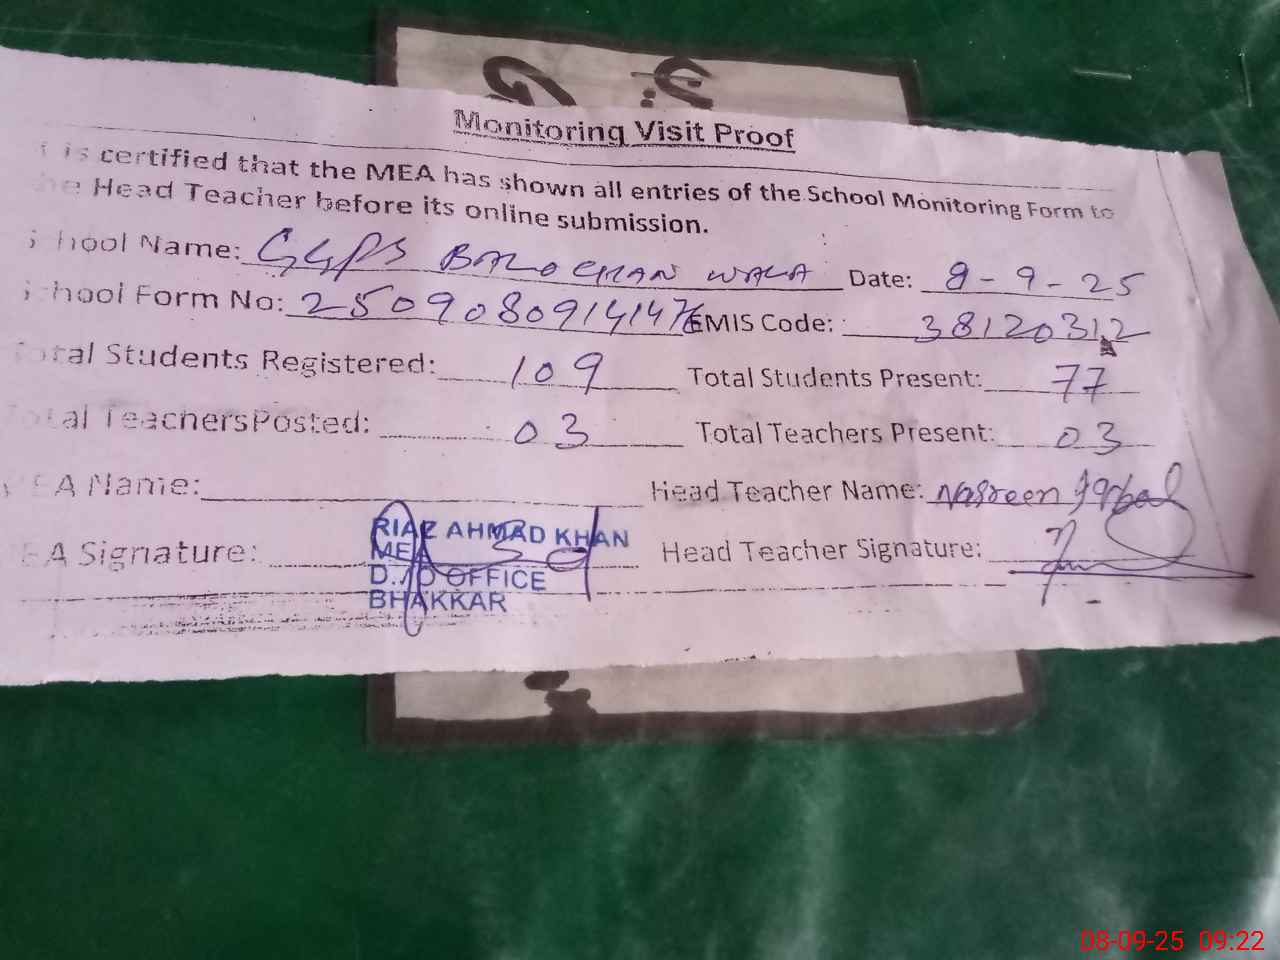 Monitoring Visit Proof
is certified that the MEA has shown all entries of the School Monitoring Form to
Head Teacher before its online submission.
School Name: GGPS BALOCHAN WALA Date: 8-9-25
School Form No: EMIS Code: 38120312
Total Students Registered: 109 Total Students Present: 77
Total TeachersPosted: 03 Total Teachers Present: 03
MEA Name: Head Teacher Name: Nasreen Iqbal
MEA Signature: Head Teacher Signature:
RIAZ AHMAD KHAN
MEA
OFFICE
BHAKKAR
08-09-25 09:22